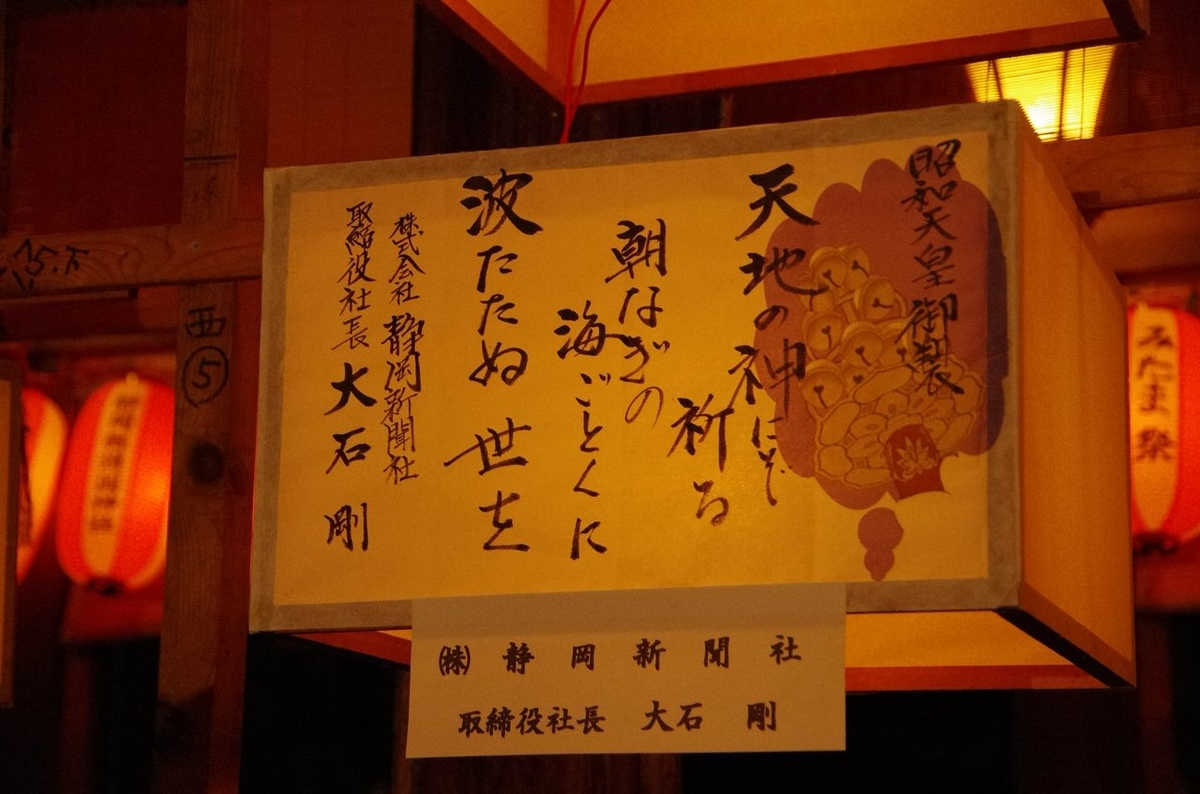 昭和天皇御製
天地の神にぞ
祈る
朝なぎの
海ごとくに
波たたぬ世を
株式会社 静岡新聞社
取締役社長 大石 剛
㈱ 静岡新聞社
取締役社長 大石 剛
西
⑤
みたま祭